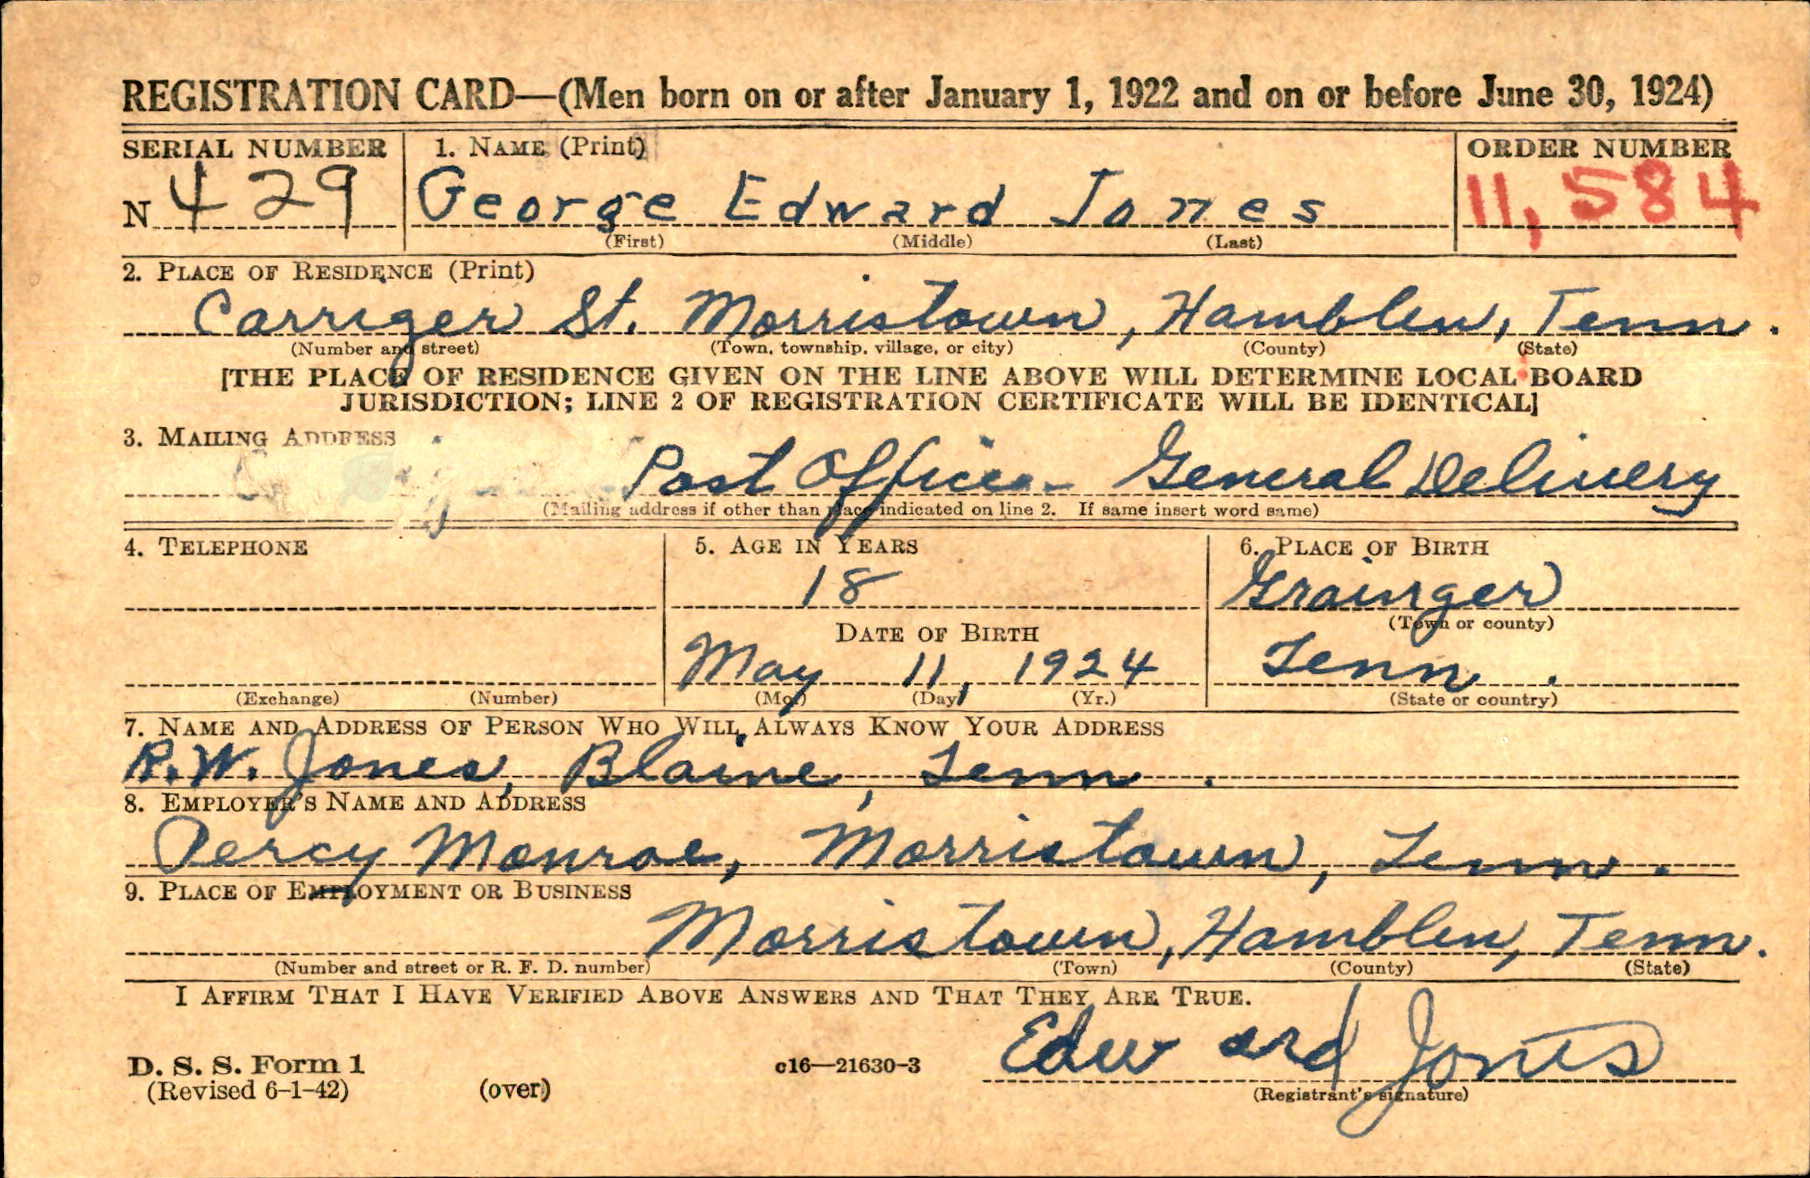 REGISTRATION CARD—(Men born on or after January 1, 1922 and on or before June 30, 1924)
SERIAL NUMBER 1. NAME (Print) ORDER NUMBER
N 429 George Edward Jones 11,584
(First) (Middle) (Last)
2. PLACE OF RESIDENCE (Print)
Carriger St. Morristown, Hamblen, Tenn.
(Number and street) (Town, township, village, or city) (County) (State)
[THE PLACE OF RESIDENCE GIVEN ON THE LINE ABOVE WILL DETERMINE LOCAL BOARD
JURISDICTION; LINE 2 OF REGISTRATION CERTIFICATE WILL BE IDENTICAL]
3. MAILING ADDRESS
Post Office - General Delivery
(Mailing address if other than place indicated on line 2. If same insert word same)
4. TELEPHONE 5. AGE IN YEARS 6. PLACE OF BIRTH
18 Grainger
DATE OF BIRTH (Town or county)
May 11, 1924 Tenn.
(Exchange) (Number) (Mo.) (Day) (Yr.) (State or country)
7. NAME AND ADDRESS OF PERSON WHO WILL ALWAYS KNOW YOUR ADDRESS
R.W. Jones, Blaine, Tenn.
8. EMPLOYER'S NAME AND ADDRESS
Percy Monroe, Morristown, Tenn.
9. PLACE OF EMPLOYMENT OR BUSINESS
Morristown, Hamblen, Tenn.
(Number and street or R. F. D. number) (Town) (County) (State)
I AFFIRM THAT I HAVE VERIFIED ABOVE ANSWERS AND THAT THEY ARE TRUE.
Edward Jones
D. S. S. Form 1 c16—21630-3
(Revised 6-1-42) (over) (Registrant's signature)